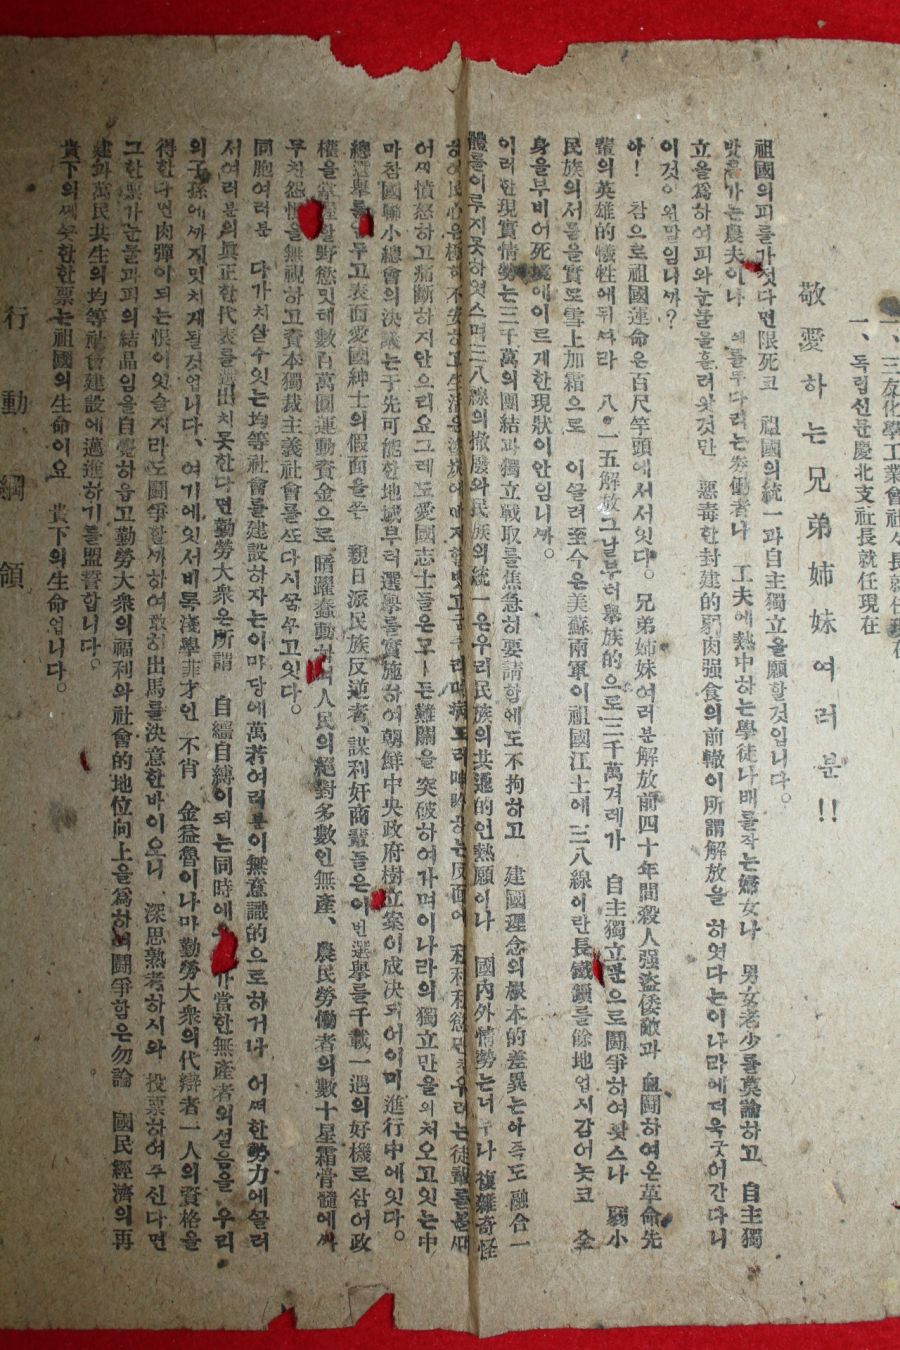 一、三友化學工業會社々長就任現在
一、독립신문慶北支社長就任現在
敬愛하는兄弟姉妹여러분!!
祖國의피를가젓다면限死코 祖國의統一과自主獨立을願할것입니다。
밧틀가는農夫이나 를두다리는勞働者나 工夫에熱中하는學徒나베를짜는婦女나 男女老少를莫論하고 自主獨
立을爲하여피와눈물을흘려왓것만 惡毒한封建的弱肉强食의前轍이所謂解放을 하엿다는이나라에더욱굿어간다니
이것이원말임니까?
아! 참으로祖國運命은百尺竿頭에서서잇다。兄弟姉妹여러분解放前四十年間殺人强盜倭敵과 血鬪하여온革命先
輩의英雄的犧牲에뒤따라 八•一五解放그날부터擧族的으로三千萬겨레가 自主獨立만으로鬪爭하여왓스나 弱小
民族의서름을實로雪上加霜으로 이끌려至今은美蘇兩軍이祖國江土에三八線이란長鐵鎖를餘地업시감어놋코 全
身을부비어死境에이르게한現狀이안임니까。
이러한現實情勢는三千萬의團結과獨立戰取를焦急히要請함에도不拘하고 建國理念의根本的差異는아즉도融合一
體를이루지못하엿스며三八線의撤廢와民族의統一은우리民族의共通的인熱願이나 國內外情勢는너무나複雜奇怪
하여民心은極히不安하고生活은 病드러呻吟하는反面에 私利私慾만채우려는徒輩를볼때
어찌憤怒하고痛斷하지안으리요그래도愛國志士들은모ー든難關을突破하여가며이나라의獨立만을의처오고잇는中
마참國聯小總會의決議는于先可能한地域부터選擧를實施하여朝鮮中央政府樹立案이成決되어이미進行中에잇다。
總選擧를 두고表面愛國紳士의假面을쓴 親日派民族反逆者、謀利奸商輩들은이번選擧를千載一遇의好機로삼어政
權을掌握할野慾밋테數百萬圓運動資金으로 曙躍蠢動하 人民의絕對多數인無產、農民勞働者의數十星霜骨髓에싸
무친怨恨을無視하고資本獨裁主義社會를또다시꿈꾸고잇다。
同胞여러분 다가치살수잇는均等社會를建設하자는이마당에萬若여러분이無意識的으로하거나 어떠한勢力에끌려
서여러분의眞正한代表를選出치못한다면勤勞大衆은所謂 自繩自縛이되는同時에 當한無產者의설음을 우리
의子孫에까지밋치게될것업니다、여기에잇서비록淺學菲才인 不肖 金益魯이나마勤勞大衆의代辯者一人의資格을
得한다면肉彈이되는恨이잇슬지라도鬪爭할까하여敢히出馬를決意한바이오니 深思熟考하시와 投票하여주신다면
그한票가눈물과피의結晶임을自覺하옵고勤勞大衆의福利와社會的地位向上을爲하여鬪爭함은勿論 國民經濟의再
建과萬民共生의均等社會建設에邁進하기를盟誓합니다。
貴下의깨끗한한票는祖國의生命이요 貴下의生命업니다。
行動綱領